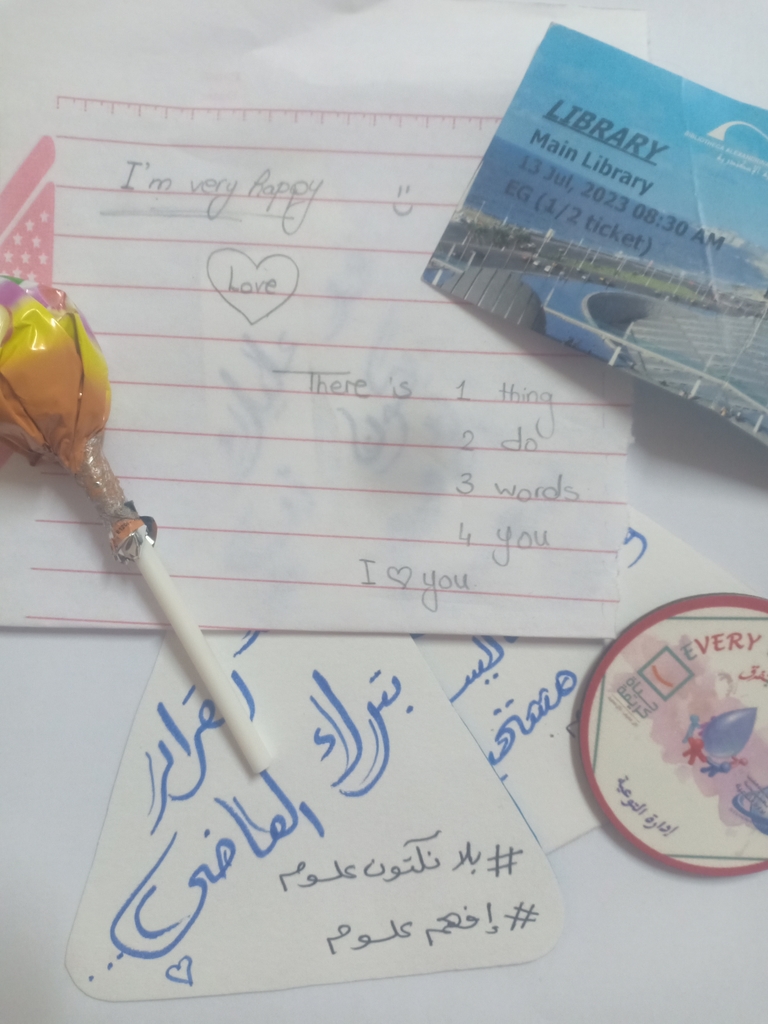 I'm very happy
Love
There is 1 thing
2 do
3 words
4 you
I ♡ you
LIBRARY
Main Library
13 Jul, 2023 08:30 AM
EG (1/2 ticket)
بترك
الماضي
#بلا نكتون علوم
#إفهم علوم
EVERY
إدارة التوعية